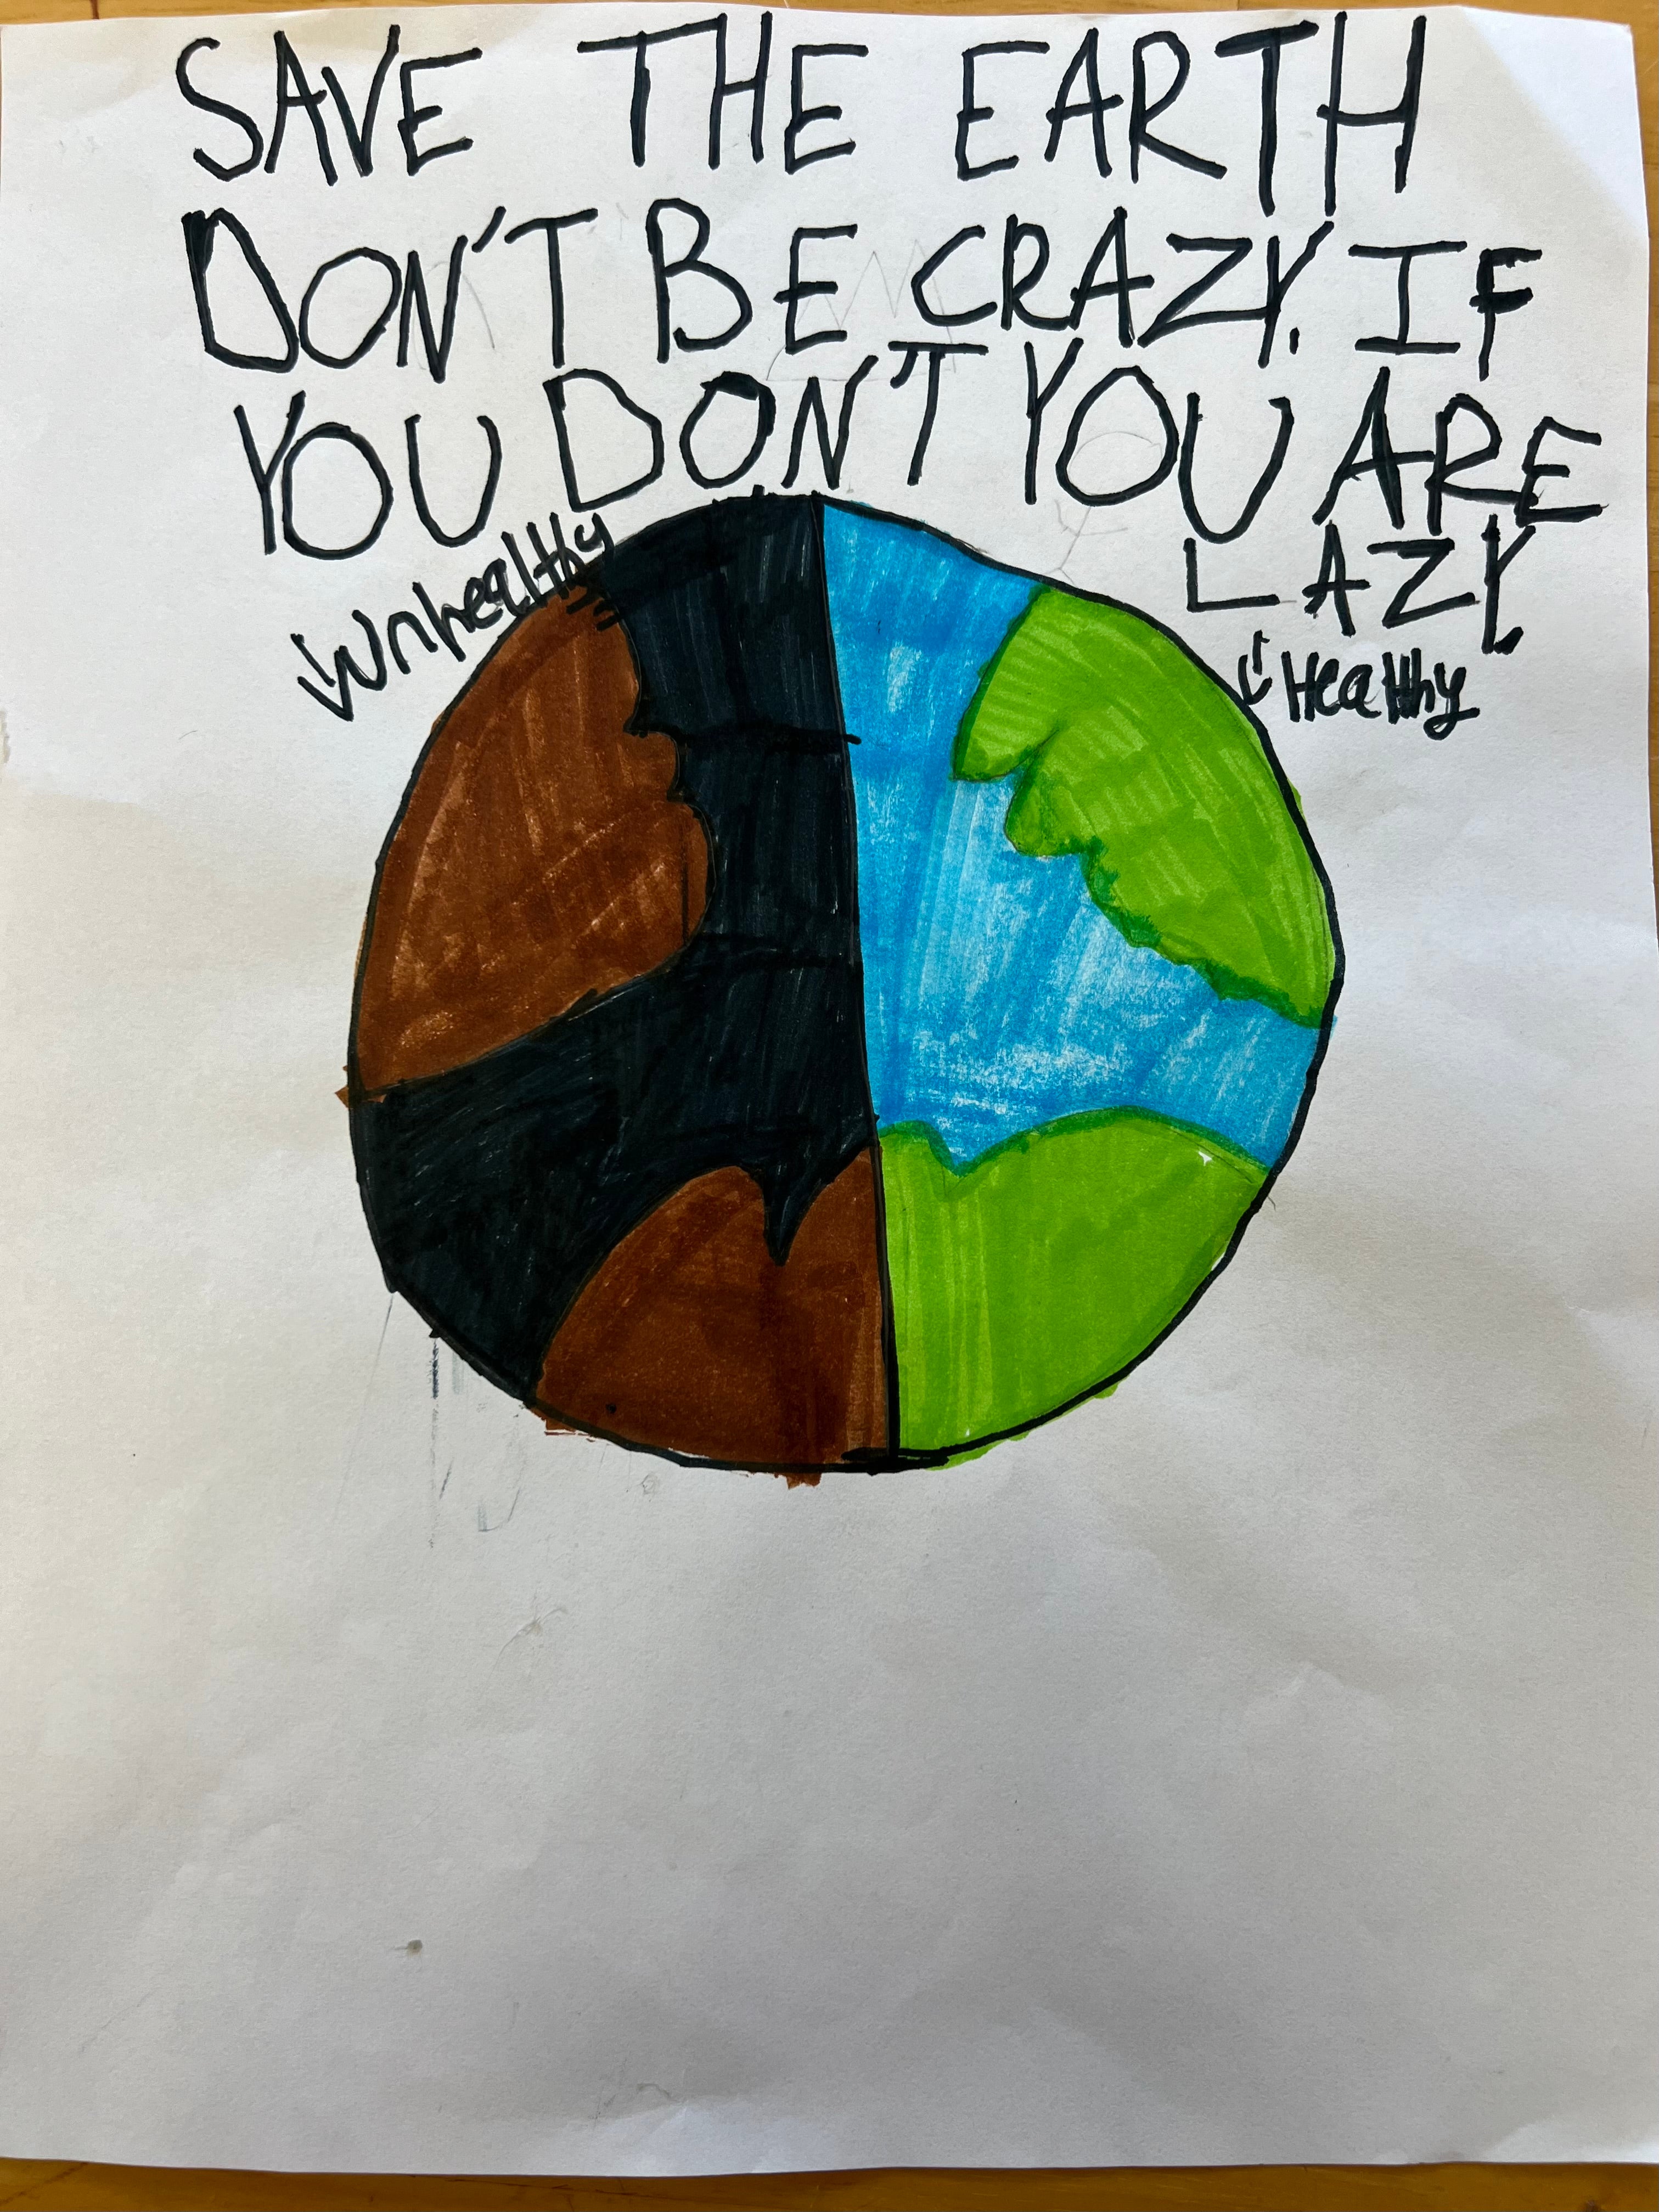 SAVE THE EARTH
DON'T BE CRAZY. IF
YOU DON'T YOU ARE
LAZY
Unhealthy
Healthy